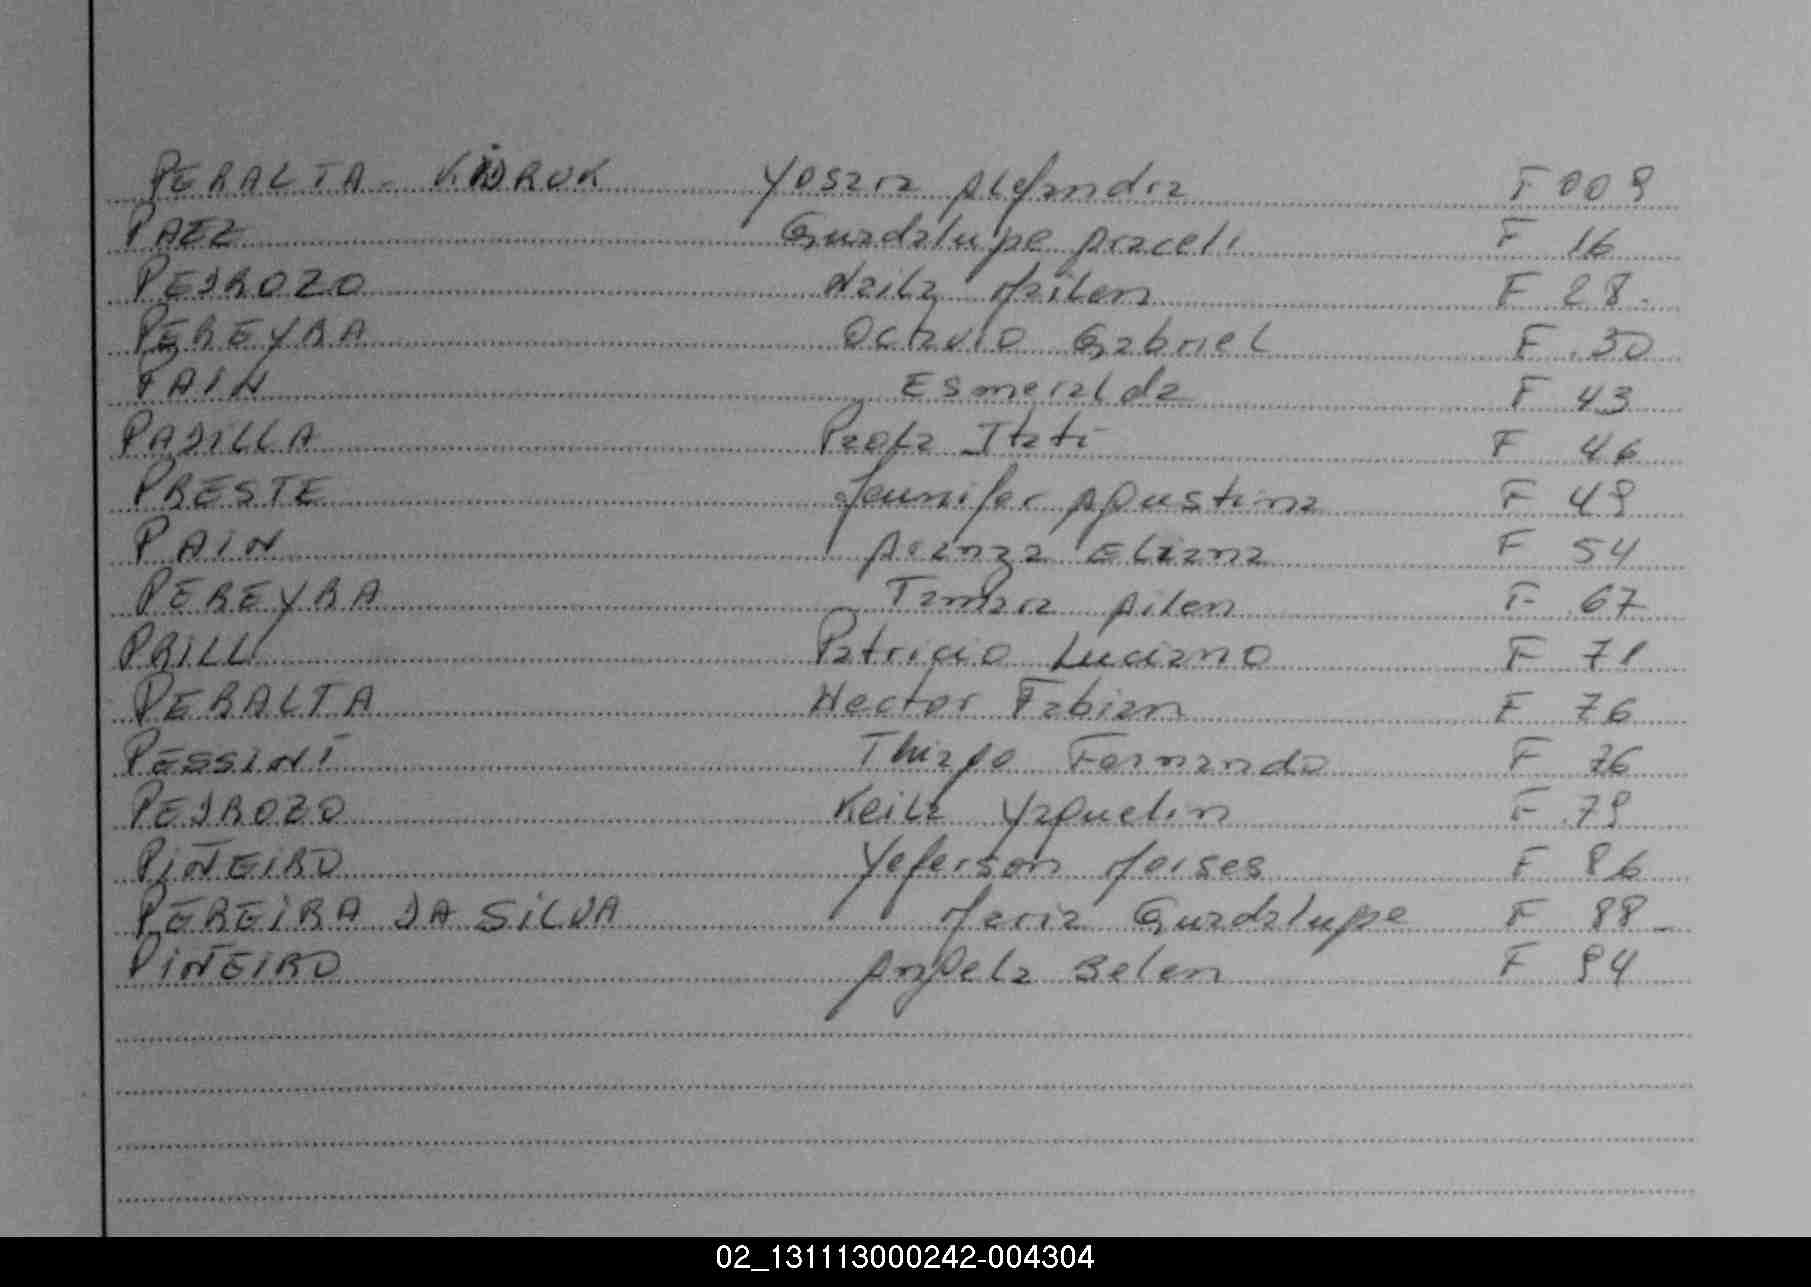 PERALTA - KIDRUK Yosara Alejandra F 009
PAEZ Guadalupe Araceli F 16
PEDROZO Naila Mailen F 28.
PEREYRA Octavio Gabriel F 30
PAIN Esmeralda F 43
PADILLA Paola Itati F 46
PRESTE Jennifer Agustina F 49
PAIN Eliana F 54
PEREYRA Tamara Ailen F 67
PRILL Patricio Luciano F 71
PERALTA Hector Fabian F 76
PESSINI Thiago Fernando F 76
PEDROZO Keila Yaquelin F 79
PIÑEIRO Yeferson Moises F 86
PEREIRA DA SILVA Maria Guadalupe F 88
PIÑEIRO Angela Belen F 94
02_131113000242-004304